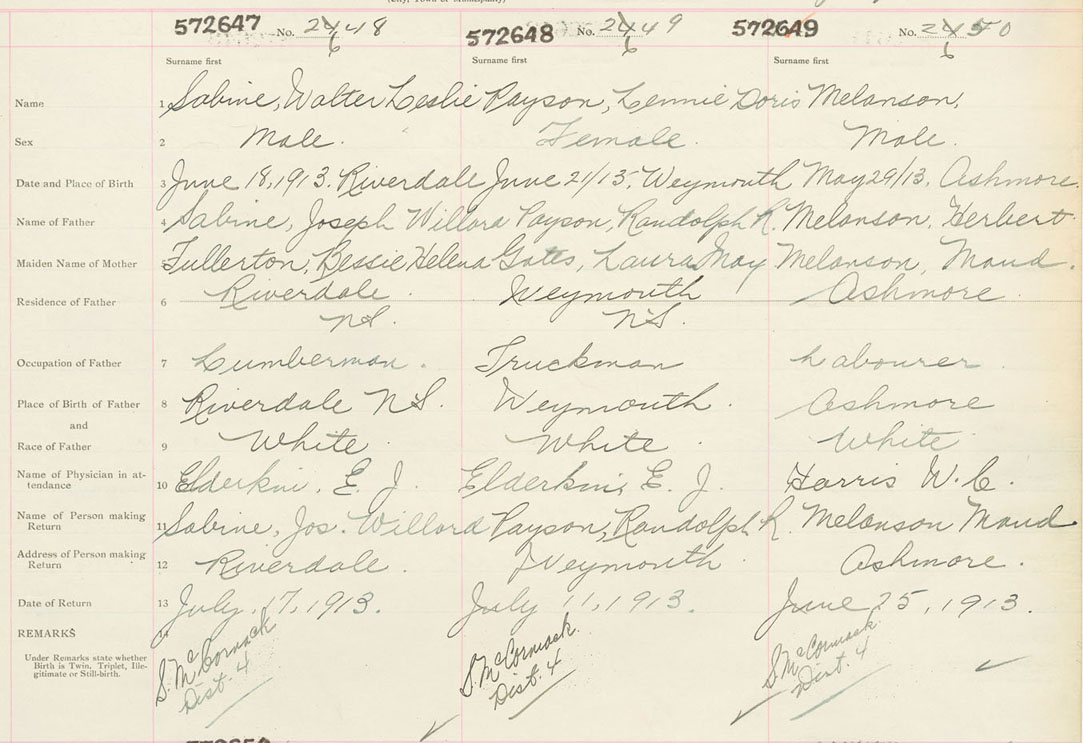 (City, Town or Municipality)
572647 No. 2448 6 572648 No. 2449 6 572649 No. 2450 6
Surname first Surname first Surname first
Name 1 Sabine, Walter Leslie Payson, Lennie Doris Melanson,
Sex 2 Male. Female. Male.
Date and Place of Birth 3 June 18, 1913. Riverdale June 21/13. Weymouth May 29/13. Ashmore.
Name of Father 4 Sabine, Joseph Willard Payson, Randolph R. Melanson, Herbert
Maiden Name of Mother 5 Fullerton, Bessie Helena Gates, Laura May Melanson, Maud.
Residence of Father 6 Riverdale Weymouth Ashmore
NS. NS.
Occupation of Father 7 Lumberman. Truckman Labourer
Place of Birth of Father 8 Riverdale NS. Weymouth. Ashmore
and
Race of Father 9 White White White
Name of Physician in at-
tendance 10 Elderkin, E. J. Elderkin, E. J. Harris W. C.
Name of Person making
Return 11 Sabine, Jos. Willard Payson, Randolph R. Melanson Maud
Address of Person making
Return 12 Riverdale. Weymouth. Ashmore.
Date of Return 13 July, 17, 1913. July 11, 1913. June 25, 1913.
REMARKS 14
Under Remarks state whether
Birth is Twin, Triplet, Ille-
gitimate or Still-birth.
S. McCormack S. McCormack. S. McCormack
Dist. 4 Dist. 4 Dist. 4